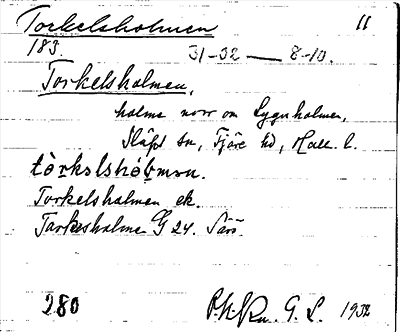 Torkelsholmen 11
183 31-32 — 8-10.
Torkelsholmen,
holme norr om Lygnholmen,
Släps sn, Fjäre hd, Hall. l.
Torkelsholmen ek.
Torkesholme G 24. Särö.
280 G. L. 1932